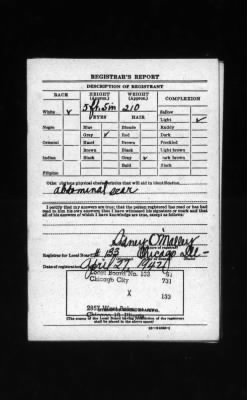 REGISTRAR'S REPORT
DESCRIPTION OF REGISTRANT
RACE HEIGHT (Approx.) WEIGHT (Approx.) COMPLEXION
5 ft. 5 in 210
White ✓ EYES HAIR Sallow
Light ✓
Negro Blue Blonde Ruddy
Gray ✓ Red Dark
Oriental Hazel Brown Freckled
Brown Black Light brown
Indian Black Gray ✓ Dark brown
Bald Black
Filipino
Other obvious physical characteristics that will aid in identification
abdominal scar
I certify that my answers are true; that the person registered has read or has had read to him his own answers; that I have witnessed his signature or mark and that all of his answers of which I have knowledge are true, except as follows:
Sidney O'Malley
Registrar for Local Board # 133 Chicago Ill-
Date of registration April 27, 1942
Local Board No. 133 61
Chicago City 731
X 133
(The stamp of the Local Board having jurisdiction of the registrant shall be placed in the above space)